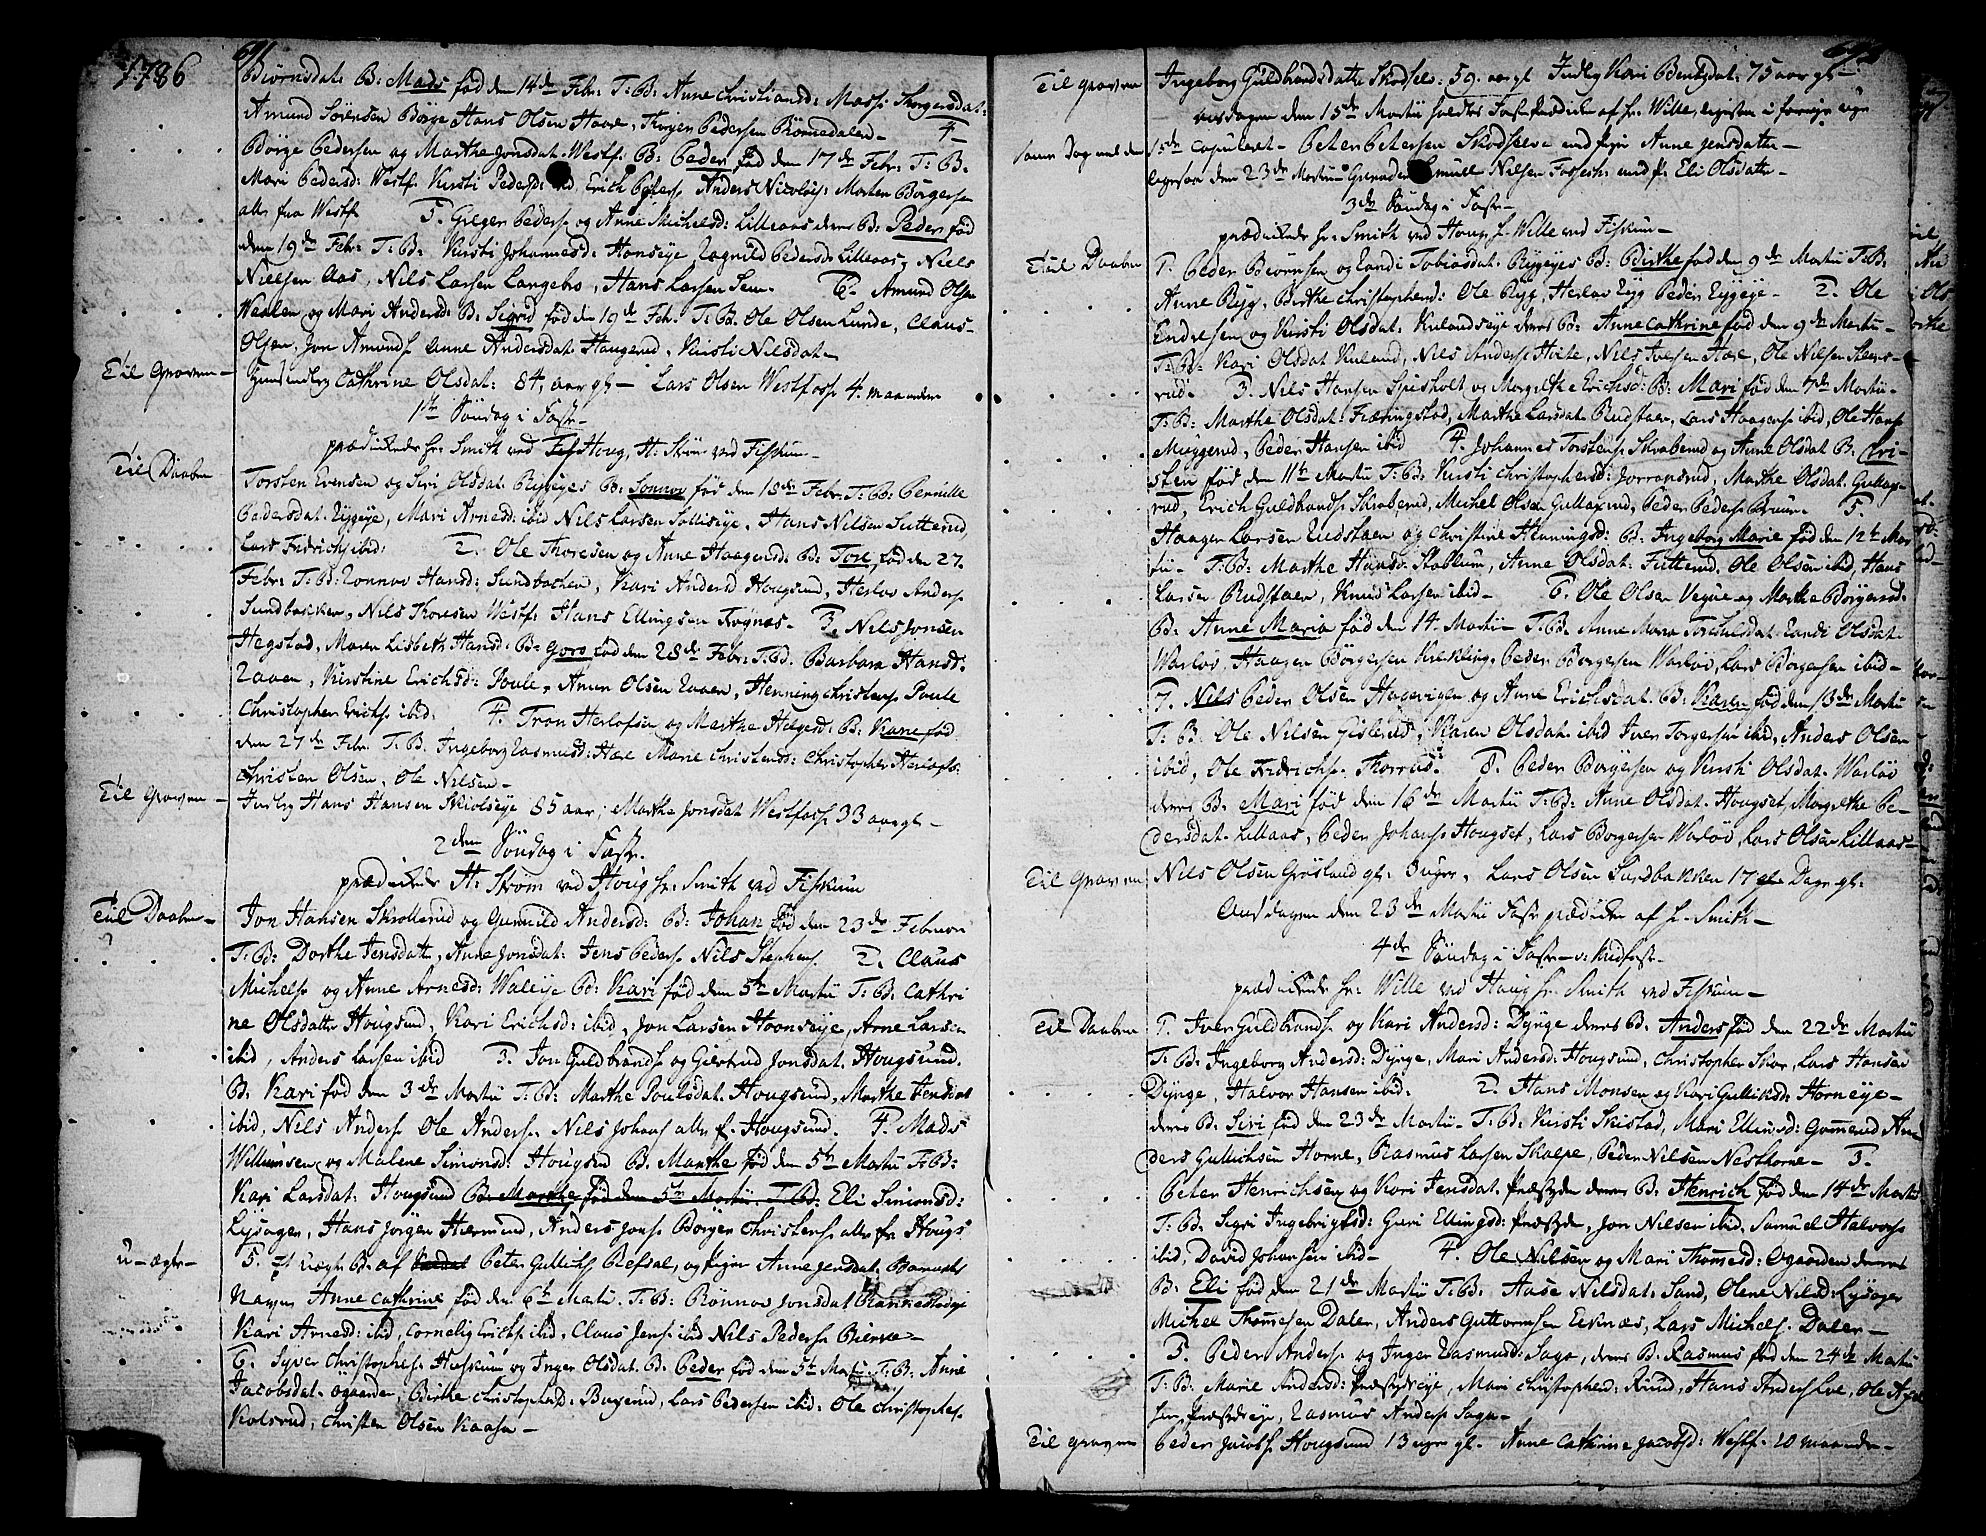 1786
691
Biörnsdat: B: Mads fød den 14de Febr: T: B: Anne Christiansd: Mass: Thorgersdat:
Amund Sörensen Börge Hans Olsen Haare, Thrger Pedersen Römmedalen — 4
Börge Pedersen og Marthe Jonsdat: Westf: B: Peder fød den 17de Febr: T: B:
Mari Pedersd: Westf: Kirsti Pedersd: ibid, Erich Peders: Anders Nicolays: Morten Börgers:
alle fra Westf: 5. Greger Peders: og Anne Michelsd: Lilleaas deres B: Peder fød
den 19de Febr: T: B: Kirsti Johannesd: Honseye, Ragnild Pedersd: Lilleaas, Niels
Nielsen Aas, Nils Larsen Langebro, Hans Larsen Sem. 6. Amund Olsen
Waalen og Mari Andersd: B: Sigrid fød den 19de Feb: T: B: Ole Olsen Lunde, Claus
Olsen, Jon Amunds: Anne Andersdat: Haugerud, Kirsti Nilsdat —
Til Graven — Cathrine Olsdat: 84 aar gl — Lars Olsen Westfoss: 4 maaneder
1ste Söndag i Faste —
prædikede Hr: Smith ved Houg, H: Ström ved Fiskum —
Til Daaben
Torsten Evensen og Siri Olsdat: Rygeyes B: Sonnov fød den 18de Febr: T: B: Pernille
Pedersdat: Rygeye, Mari Arnesd: ibid Nils Larsen Sollieye, Hans Nilsen Sutterud,
Lars Fridrichs: ibid: 2. Ole Thoresen og Anne Haagensd: B: Tore fød den 27
Febr: T: B: Ronnov Hansd: Sundbachen, Kari Andersd Hougsund, Herlov Anders:
Sundbakken, Nils Thoresen Westf: Hans Ellingsen Trygnes. 3. Nils Jonsen
Hegstad, Maren Lisbeth Hansd: B: Goro fød den 28de Feb: T: B: Barbara Hansd:
Raaen, Kirstine Erichsd: Poule, Amun Olsen Raaen, Henning Christens: Poule
Christopher Erichs: ibid: 4. Tron Herlofsen og Marthe Helgesd: B: Kane fød
den 27de Febr: T: B: Ingeborg Rasmusd: Hæe Marie Christensd: Christopher Herlofs:
Christen Olsen, Ole Nilsen —
Til Graven — Inderby Hans Hansen Skiolseye 85 aar, Marthe Jonsdat Westfoss: 33 aar gl —
2den Söndag i Faste.
prædikede H: Ström ved Houg Hr: Smith ved Fiskum
Til Daaben —
Jon Hansen Skrollerud og Gunnild Andersd: B: Johan fød den 23de Februar
T: B: Dorthe Jensdatt, Anne Jonsdat: Jens Peders: Nils Stephens: 2. Claus
Michels: og Anne Arnesd: Waleye B: Kari fød den 5te Martii T: B: Cathri
ne Olsdatter Hougsund, Kari Erichsd: ibid, Jon Larsen Hoenseye, Arne Larsen
ibid, Anders Larsen ibid 3. Jon Guldbrands: og Giertrud Jonsdat: Hougsund.
B: Kari fød den 3de Martii T: B: Marthe Poulsdat: Hougsund, Marthe Jensdat
ibid, Nils Anders: Ole Anders: Nils Johans: alle f: Hougsund. 4. Mads
Willumsen og Malene Simonsd: Hougsund B: Marthe fød den 5te Martii T: B:
Kari Larsdat: Hougsund B: Marthe fød den 5te Martii T: B: Eli Simonsd:
Lysager, Hans Jörgen Hærmund, Anders Jons: Börger Christens: alle fra Hougs:
u-ægte — 5. Et uægte B: af Peter Gullichs: Refsal, og pigen Anne Jensdat
Anne Cathrine fød den 6te Martii. T: B: Rönnov Jonsdat
Kari Arnesd: ibid, Cornelig Erichs: ibid, Claus Jens: ibid Nils Peders: Bierke —
6. Syver Christophers: Huskum og Inger Olsdat: B: Peder fød den 5te Martii T: B: Anne
Jacobsdat: Ögaarden, Birthe Christophersd: Bingerud, Lars Pedersen ibid: Ole Christophers:
Kolsrud, Christen Olsen Kaasen —
692
Til Graven Ingeborg Guldbrandsdatter Skodsel: 59 aar gl Inderby Kari Bentsdat: 75 aar gl —
onsdagen den 15de Martii holdtes Faste Prædiken af Hr: Wille
samme Dag ved den 15de Copuleret — Peter Petersen Skodselv med pigen Anne Jensdatter —
ligesaa den 23de Martii Grenader Samuel Nilsen Fossesh: med p: Eli Olsdatter —
3de Söndag i Faste —
prædikede Hr: Smith ved Houg H: Wille ved Fiskum —
Til Daaben 1. Peder Biörnsen og Randi Tobiasdat: Rygeyes B: Birthe fød den 9de Martii T: B:
Anne Ryg, Birthe Christophersd: Ole Ryg, Herlov Ryg Peder Rygeye — 2. Ole
Endresen og Kirsti Olsdat: Kulandseye deres B: Anne Cathrine fød den 9de Martii —
T: B: Kari Olsdat Kuland, Nils Anders: Hvite, Nils Iversen Hæe, Ole Nilsen Steens-
rud: 3. Nils Hansen Spisholt og Margrethe Erichsd: B: Mari fød den 7de Martii —
T: B: Marthe Olsdat: Fræringstad, Marthe Larsdat Rudstaen, Lars Haagens: ibid, Ole Hans:
Muggerud, Peder Hansen ibid 4. Johannes Torstens: Skraberud og Anne Olsdat B: Chri-
sten fød den 11te Martii T: B: Kirsti Christophersd: Jorransrud, Marthe Olsdat: Gullag-
rud, Erich Guldbrands: Skraberud, Michel Olsen Gullagrud, Peder Peders: Bruun — 5.
Haagen Larsen Rudstaen og Christine Henningsd: B: Ingeborg Marie fød den 12te Mar
tii — T: B: Marthe Hansd: Stablum, Anne Olsdat: Futterud, Ole Olsen ibid, Hans
Larsen Rudstaen, Knud Larsen ibid — 6. Ole Olsen Vegne og Marthe Börgersd:
B: Anne Maria fød den 14. Martii — T: B: Anne Maria Torchildsdat: Randi Olsdat
Warlöv, Haagen Börgersen Krekling, Peder Borgersen Warlöv, Lars Börgersen ibid —
7. Nils Peder Olsen Hagevigen og Anne Erichsdat: B: Karen fød den 13de Martii
T: B: Ole Nilsen Gislerud, Karen Olsdat: ibid Iver Torgersen ibid, Anders Olsen
ibid, Ole Fridrichs: Thorrud. 8. Peder Borgersen og Kirsti Olsdat: Warlöv
deres B: Mari fød den 16de Martii T: B: Anne Olsdat: Hougset, Margrethe Pe-
dersdat: Lilleaas, Peder Johans: Hougset, Lars Borgersen Warlöv, Lars Olsen Lilleaas —
Til Graven Nils Olsen Grösland gl: 3 uger, Lars Olsen Sundbakken 17 Dage gl:
Onsdagen den 23de Martii Faste prædiken af H: Smith —
4de Söndag i Faste — Midfaste —
prædikede Hr: Wille ved Houg Hr: Smith ved Fiskum —
Til Daaben 1. Iver Guldbrands: og Kari Andersd: Dynge deres B: Anders fød den 22de Martii
T: B: Ingeborg Andersd: Dynge, Mari Andersd: Hougsund, Christopher Skov, Lars Hansen
Dynge, Halvor Hansen ibid. 2. Hans Monsen og Kari Gulliksd: Horneye —
deres B: Siri fød den 23de Martii — T: B: Kirsti Skistad, Mari Ellingsd: Gommerud An-
ders Gullichsen Horne, Rasmus Larsen Skalpe, Peder Nilsen Nesthorne — 3.
Peter Henrichsen og Kari Jensdat: deres B: Henrich fød den 14de Martii
T: B: Sigri Ingebrigtsd: Guri Ellingsd: Jon Nilsen ibid, Samuel Halvors:
ibid, David Johansen ibid — 4. Ole Nilsen og Mari Thomesd: Ogaarden deres
B: Eli fød den 21de Martii T: B: Aase Nilsdat: Sand, Olene Nilsd: Lysager
Michel Thomesen Dalen, Anders Guttormsen Eeknæs, Lars Michels: Dalen —
5. Peder Anders: og Inger Rasmusd: Saga, deres B: Rasmus fød den 24de Martii
T: B: Marie Andersd: Præstydeye, Mari Christophersd: Ruud, Hans Anders: Loe, Ole
Præstydeye, Rasmus Anders: Saga —
Til Graven Peder Jacobs: Hougsund 13 uger gl. Anne Cathrine Jacobsd: Westf: 20 maaneder —